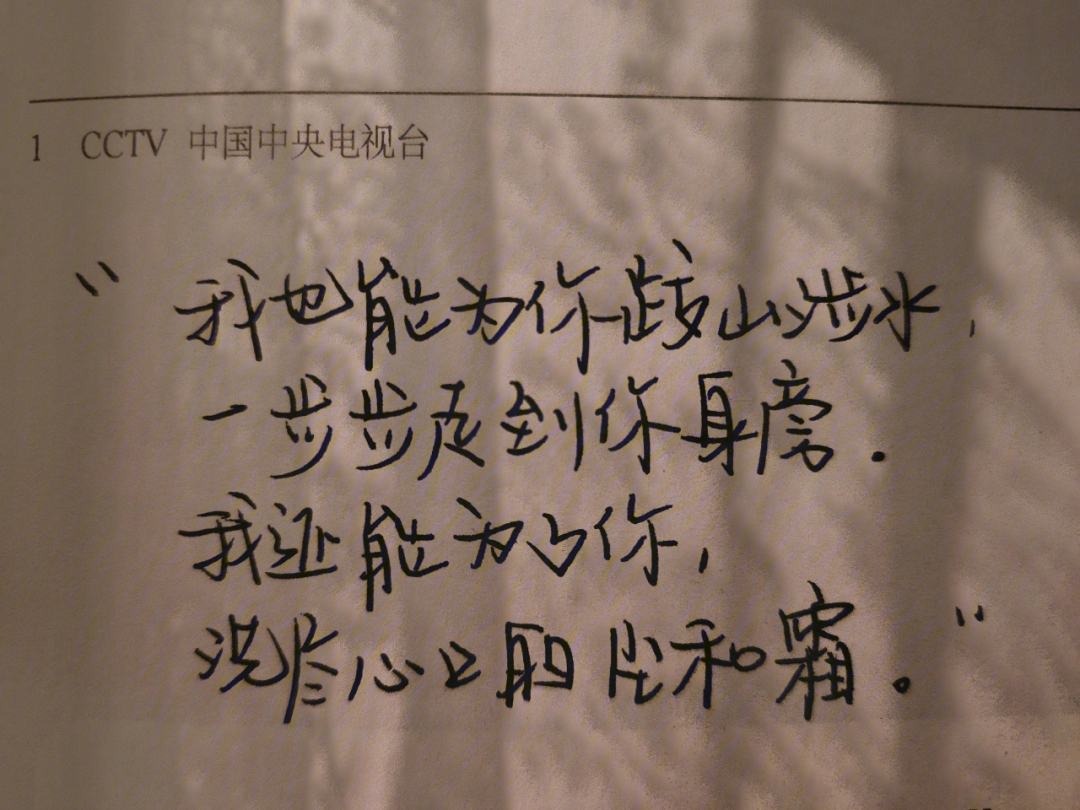 1 CCTV 中国中央电视台
“我也能为你跋山涉水,
一步步走到你身旁.
我还能为了你,
洗尽心口的尘和霜。”